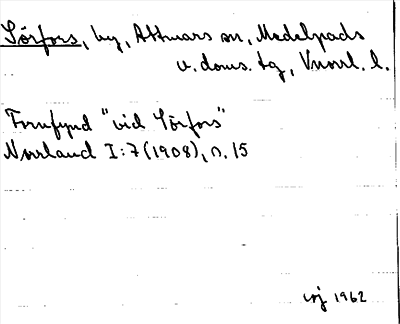 Sörfors, by, Attmars sn, Medelpads
v. doms. tg, Vnorrl. l.
Fornfynd "vid Sörfors"
Norrland I:7 (1908), n. 15
1962